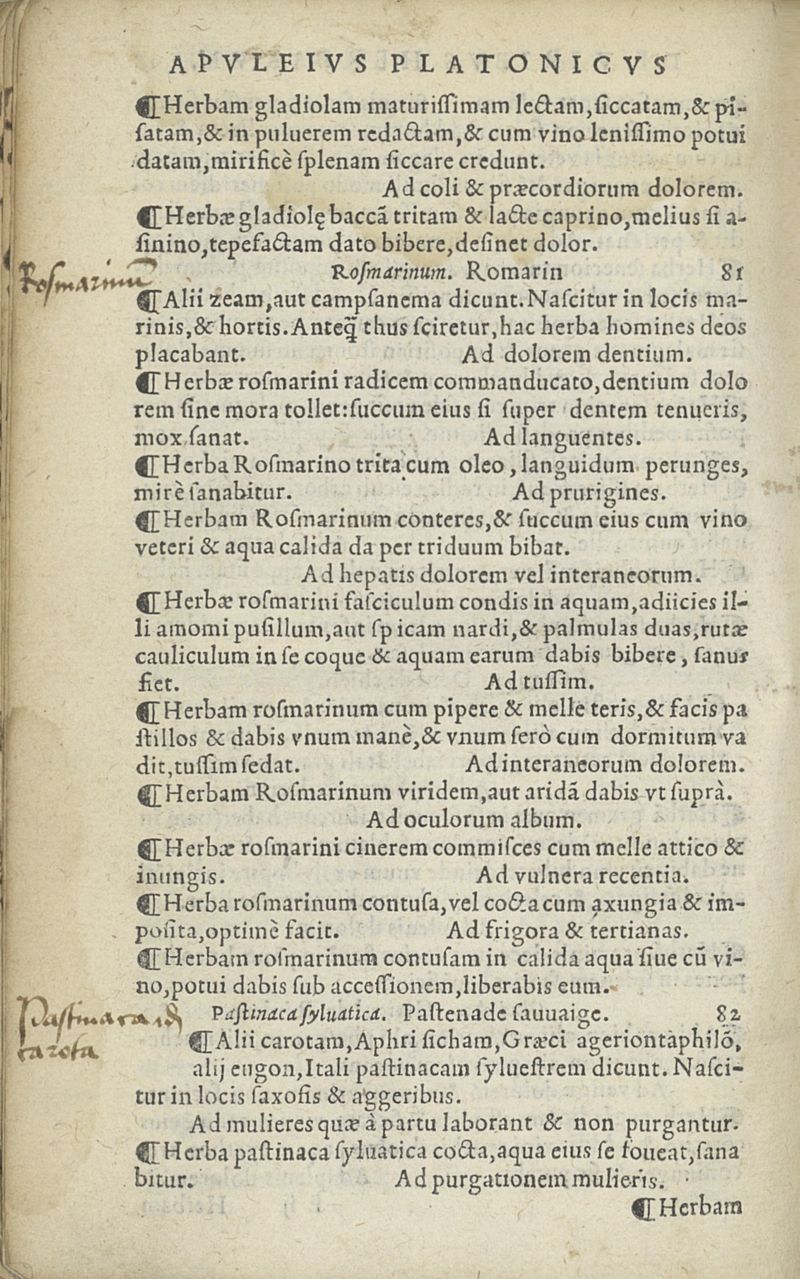 APVLEIVS PLATONICVS
¶Herbam gladiolam maturiſſimam lectam,ſiccatam,& pi-
ſatam,& in puluerem redactam,& cum vino leniſſimo potui
datam,mirificè ſplenam ſiccare credunt.
Ad coli & præcordiorum dolorem.
¶Herbæ gladiolę baccã tritam & lacte caprino,melius ſi a-
ſinino,tepefactam dato bibere,deſinet dolor.
Roſmarinum. Romarin 81
Roſmarinũ
¶Alii zeam,aut campſanema dicunt.Naſcitur in locis ma-
rinis,& hortis.Anteq̃ thus ſciretur,hac herba homines deos
placabant. Ad dolorem dentium.
¶Herbæ roſmarini radicem commanducato,dentium dolo
rem ſine mora tollet:ſuccum eius ſi ſuper dentem tenueris,
mox ſanat. Ad languentes.
¶Herba Roſmarino trita cum oleo,languidum perunges,
mirè ſanabitur. Ad prurigines.
¶Herbam Roſmarinum conteres,& ſuccum eius cum vino
veteri & aqua calida da per triduum bibat.
Ad hepatis dolorem vel interaneorum.
¶Herbæ roſmarini faſciculum condis in aquam,adiicies il-
li amomi puſillum,aut ſpicam nardi,& palmulas duas,rutæ
cauliculum in ſe coque & aquam earum dabis bibere, ſanus
fiet. Ad tuſſim.
¶Herbam roſmarinum cum pipere & melle teris,& facis pa
ſtillos & dabis vnum manè,& vnum ſerò cum dormitum va
dit,tuſſim ſedat. Ad interaneorum dolorem.
¶Herbam Roſmarinum viridem,aut aridã dabis vt ſuprà.
Ad oculorum album.
¶Herbæ roſmarini cinerem commiſces cum melle attico &
inungis. Ad vulnera recentia.
¶Herba roſmarinum contuſa,vel cocta cum axungia & im-
poſita,optimè facit. Ad frigora & tertianas.
¶Herbam roſmarinum contuſam in calida aqua ſiue cũ vi-
no,potui dabis ſub acceſſionem,liberabis eum.
Paſtinaca ſyluatica. Paſtenade ſauuaige. 82
¶Alii carotam,Aphri ſicham,Græci ageriontaphilõ,
alij eugon,Itali paſtinacam ſylueſtrem dicunt. Naſci-
tur in locis ſaxoſis & aggeribus.
Ad mulieres quæ à partu laborant & non purgantur.
¶Herba paſtinaca ſyluatica cocta,aqua eius ſe foueat,ſana
bitur. Ad purgationem mulieris.
¶Herbam